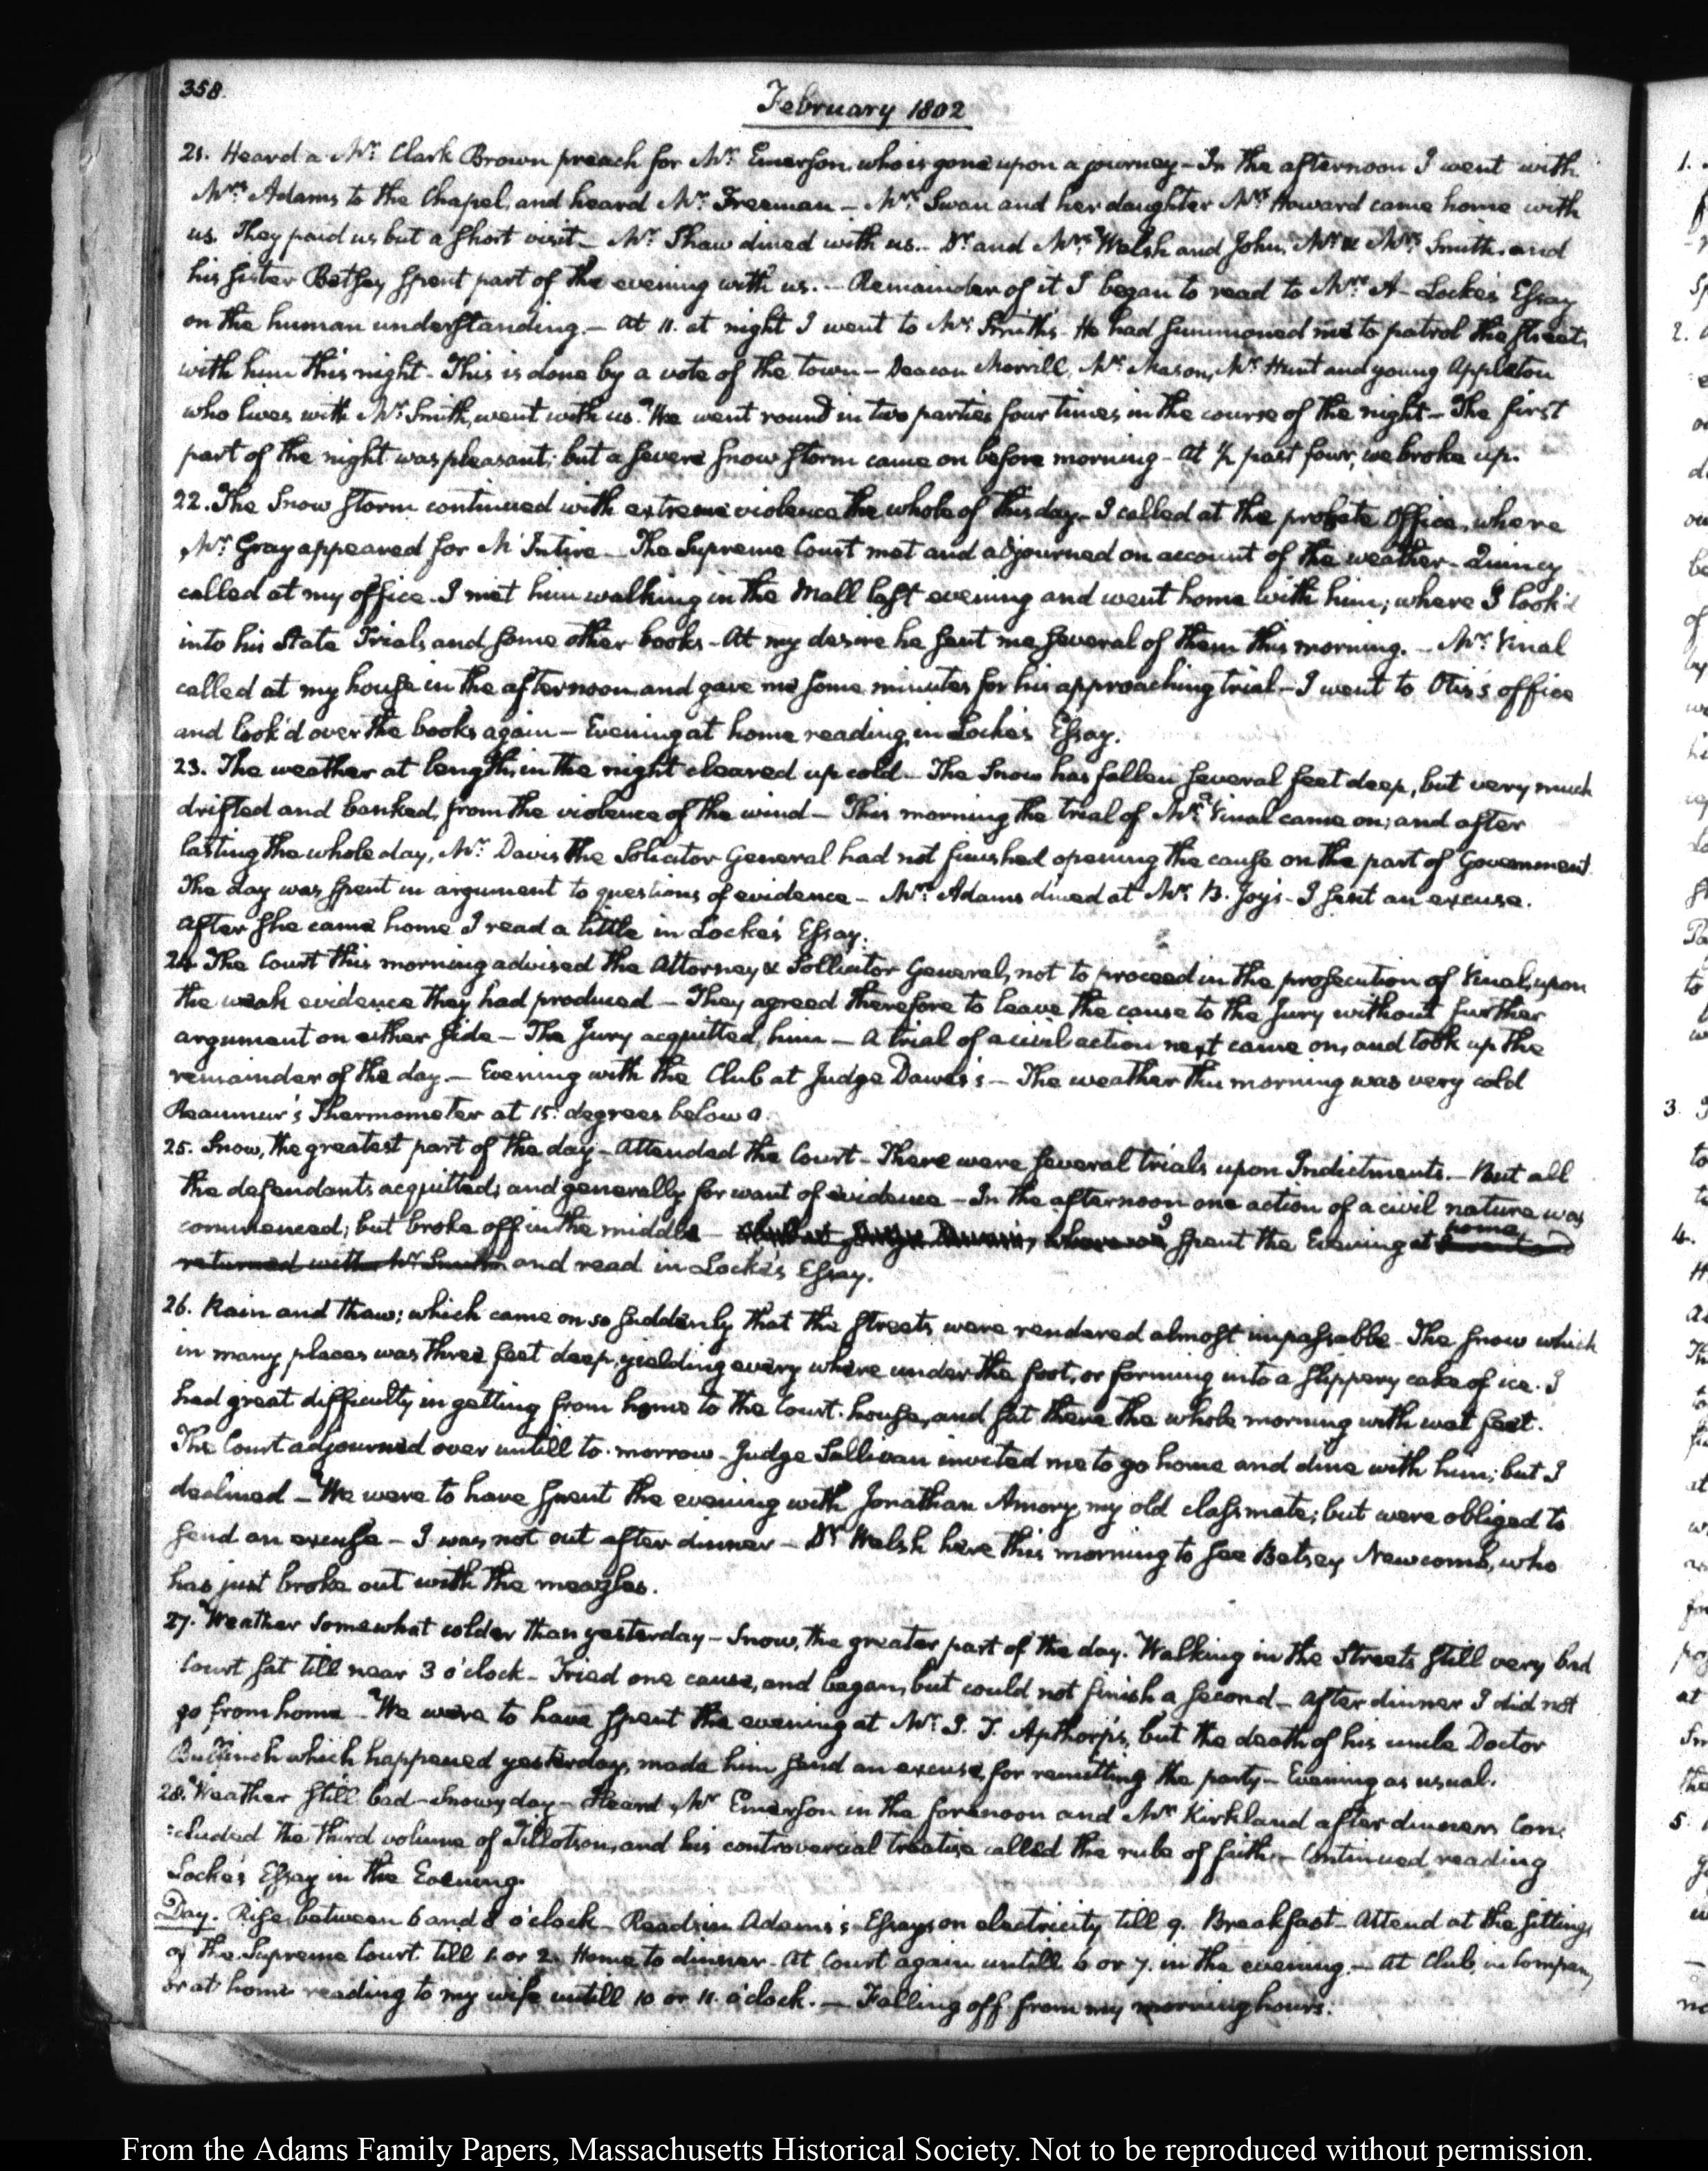 358.
February 1802
21. Heard a Mr. Clark Brown preach for Mr. Emerson, who is gone upon a journey - In the afternoon I went with
Mrs. Adams to the Chapel, and heard Mr. Freeman - Mrs. Swan and her daughter Mrs. Howard came home with
us. They paid us but a short visit - Mr. Shaw dined with us. - Dr. and Mrs. Welsh and John, Mr. & Mrs. Smith and
his sister Betsey spent part of the evening with us. - Remainder of it I began to read to Mrs. A - Locke's Essay
on the human understanding. - At 11. at night I went to Mr. Smith's - He had summoned me to patrol the streets
with him this night - This is done by a vote of the town - Deacon Morrill, Mr. Mason, Mr. Hunt and young Appleton
who lives with Mr. Smith, went with us. We went round in two parties four times in the course of the night - The first
part of the night was pleasant; but a severe snow storm came on before morning - At 1/2 past four, we broke up.
22. The Snow storm continued with extreme violence the whole of this day - I called at the probate Office, where
Mr. Gray appeared for M'Intire - The Supreme Court met and adjourned on account of the weather - Quincy
called at my office. I met him walking in the Mall last evening and went home with him; where I look'd
into his State Trials and some other books - At my desire he sent me several of them this morning. - Mr. Vinal
called at my house in the afternoon and gave me some minutes for his approaching trial - I went to Otis's office
and look'd over the books again - Evening at home reading in Locke's Essay.
23. The weather at length, in the night cleared up cold - The Snow has fallen several feet deep, but very much
drifted and banked, from the violence of the wind - This morning the trial of Mr. Vinal came on; and after
lasting the whole day, Mr. Davis the Solicitor General had not finished opening the cause on the part of Government.
The day was spent in argument to questions of evidence - Mrs. Adams dined at Mr. B. Joy's - I sent an excuse.
After she came home I read a little in Locke's Essay.
24. The Court this morning advised the Attorney & Sollicitor General, not to proceed in the prosecution of Vinal, upon
the weak evidence they had produced - They agreed therefore to leave the cause to the Jury without further
argument on either side - The Jury acquitted him - A trial of a civil action next came on, and took up the
remainder of the day. - Evening with the Club at Judge Dawes's - The weather this morning was very cold
Reaumur's Thermometer at 15. degrees below 0.
25. Snow, the greatest part of the day - Attended the Court - There were several trials upon Indictments. - But all
the defendants acquitted; and generally for want of evidence - In the afternoon one action of a civil nature was
commenced; but broke off in the middle - I spent the Evening at home
returned with Mr. Smith and read in Locke's Essay.
26. Rain and thaw; which came on so suddenly that the streets were rendered almost impassable - The snow which
in many places was three feet deep, yielding every where under the foot, or forming into a slippery cake of ice. I
had great difficulty in getting from home to the Court-house, and sat there the whole morning with wet feet.
The Court adjourned over untill to-morrow - Judge Sullivan invited me to go home and dine with him; but I
declined - We were to have spent the evening with Jonathan Amory, my old classmate; but were obliged to
send an excuse - I was not out after dinner - Dr. Welsh here this morning to see Betsey Newcomb, who
has just broke out with the meazles.
27. Weather somewhat colder than yesterday - Snow, the greater part of the day. Walking in the Streets still very bad
Court sat till near 3 o'clock - Tried one cause, and began, but could not finish a second - After dinner I did not
go from home - We were to have spent the evening at Mr. J. T. Apthorp's, but the death of his uncle Doctor
Bulfinch which happened yesterday, made him send an excuse, for remitting the party - Evening as usual.
28. Weather still bad - Snowy day - Heard Mr. Emerson in the forenoon and Mr. Kirkland after dinner. Con-
:cluded the third volume of Tillotson, and his controversial treatise called the rule of faith. - Continued reading
Locke's Essay in the Evening.
Day. Rise between 6 and 8 o'clock - Read in Adams's Essays on electricity till 9. Breakfast - Attend at the sittings
of the Supreme Court till 1 or 2. Home to dinner - At Court again untill 6 or 7. in the evening. - At Club, in Company,
or at home reading to my wife untill 10 or 11. o'clock. - Falling off from my morning hours.
From the Adams Family Papers, Massachusetts Historical Society. Not to be reproduced without permission.